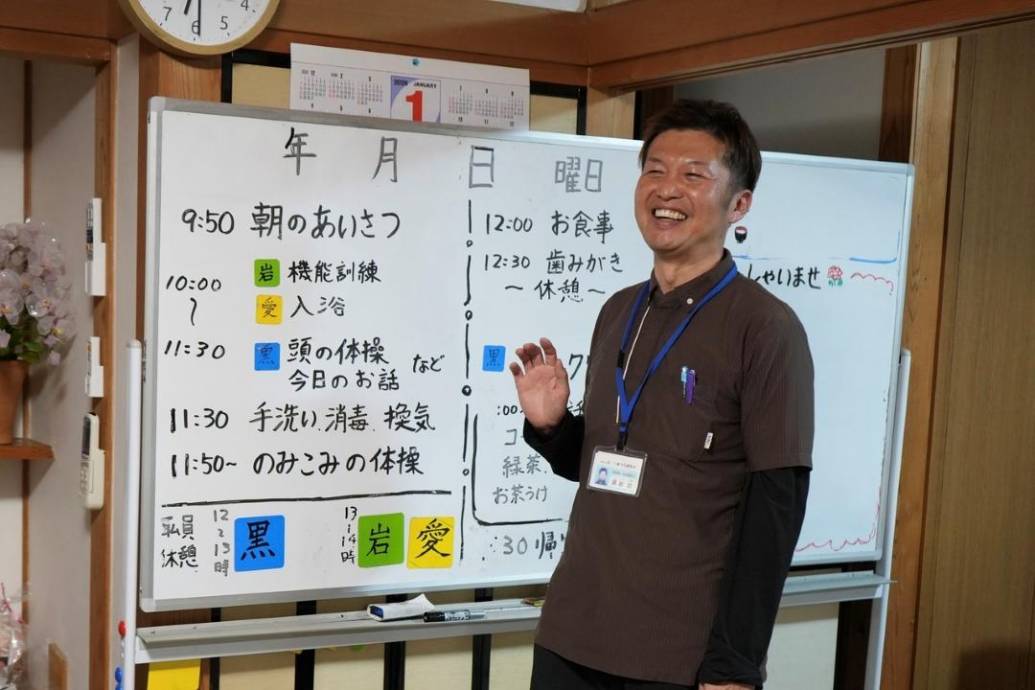 7 6 5
2026 JANUARY
1
年 月 日 曜日
9:50 朝のあいさつ
10:00
〜
11:30
岩 機能訓練
愛 入浴
黒 頭の体操
今日のお話
など
11:30 手洗い、消毒、換気
11:50~ のみこみの体操
休憩
12
〜
13
時
黒
13
〜
14
時
岩 愛
12:00 お食事
12:30 歯みがき
〜休憩〜
黒
:00
緑茶
お茶うけ
:30 帰
しゃいませ